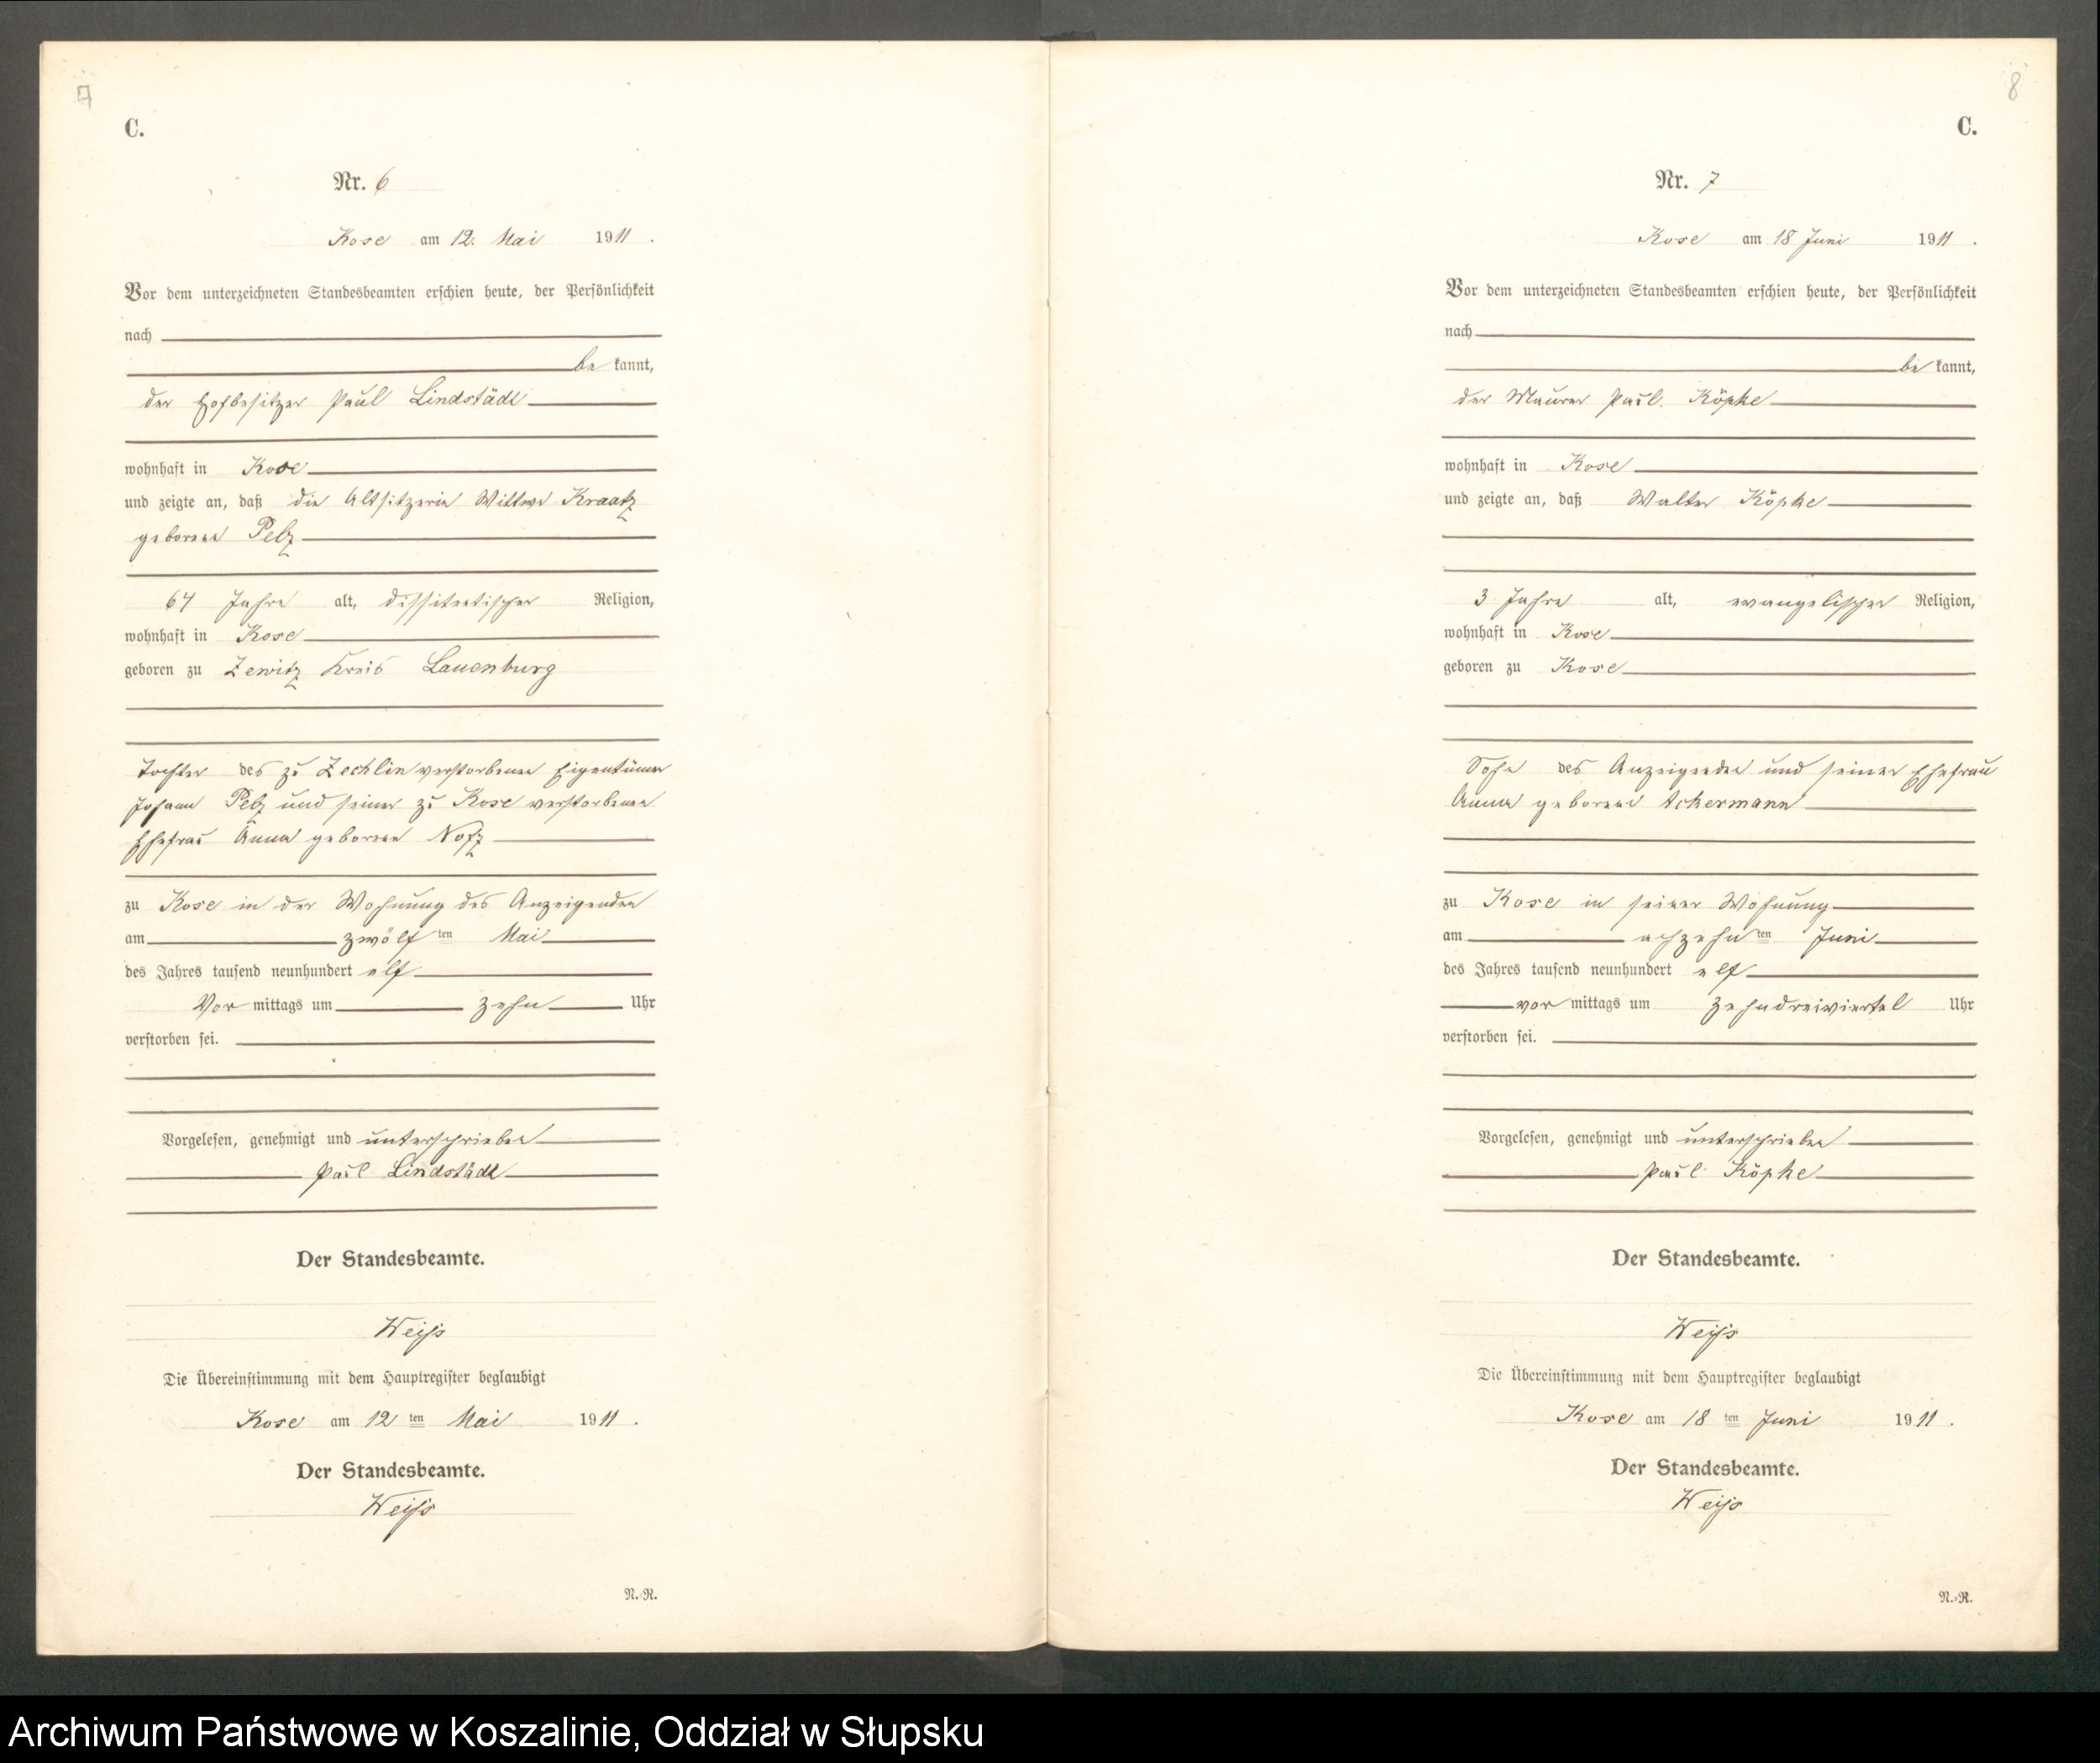 7
C.
Nr. 6
Kose am 12. Mai 1911.
Vor dem unterzeichneten Standesbeamten erschien heute, der Persönlichkeit
nach
be kannt,
der Hofbesitzer Paul Lindstädt
wohnhaft in Kose
und zeigte an, daß die Altsitzerin Wittwe Kraatz
geborene Pelz
64 Jahre alt, Religion,
wohnhaft in Kose
geboren zu Zewitz Kreis Lauenburg
Tochter des zu Zechlin verstorbenen Eigentümer
Johann Pelz und seiner zu Kose verstorbenen
Ehefrau Anna geborene
zu Kose in der Wohnung des Anzeigenden
am zwölf ten Mai
des Jahres tausend neunhundert elf
Vor mittags um zehn Uhr
verstorben sei.
Vorgelesen, genehmigt und unterschrieben
Paul Lindstädt
Der Standesbeamte.
Weiss
Die Übereinstimmung mit dem Hauptregister beglaubigt
Kose am 12 ten Mai 1911.
Der Standesbeamte.
Weiss
N.-R.
8
C.
Nr. 7
Kose am 18 Juni 1911.
Vor dem unterzeichneten Standesbeamten erschien heute, der Persönlichkeit
nach
be kannt,
der Maurer Paul Köpke
wohnhaft in Kose
und zeigte an, daß Walter Köpke
3 Jahre alt, evangelischer Religion,
wohnhaft in Kose
geboren zu Kose
Sohn des Anzeigenden und seiner Ehefrau
Anna geborene Ackermann
zu Kose in seiner Wohnung
am achzehn ten Juni
des Jahres tausend neunhundert elf
vor mittags um zehndreiviertel Uhr
verstorben sei.
Vorgelesen, genehmigt und unterschrieben
Paul Köpke
Der Standesbeamte.
Weiss
Die Übereinstimmung mit dem Hauptregister beglaubigt
Kose am 18 ten Juni 1911.
Der Standesbeamte.
Weiss
N.-R.
Archiwum Państwowe w Koszalinie, Oddział w Słupsku